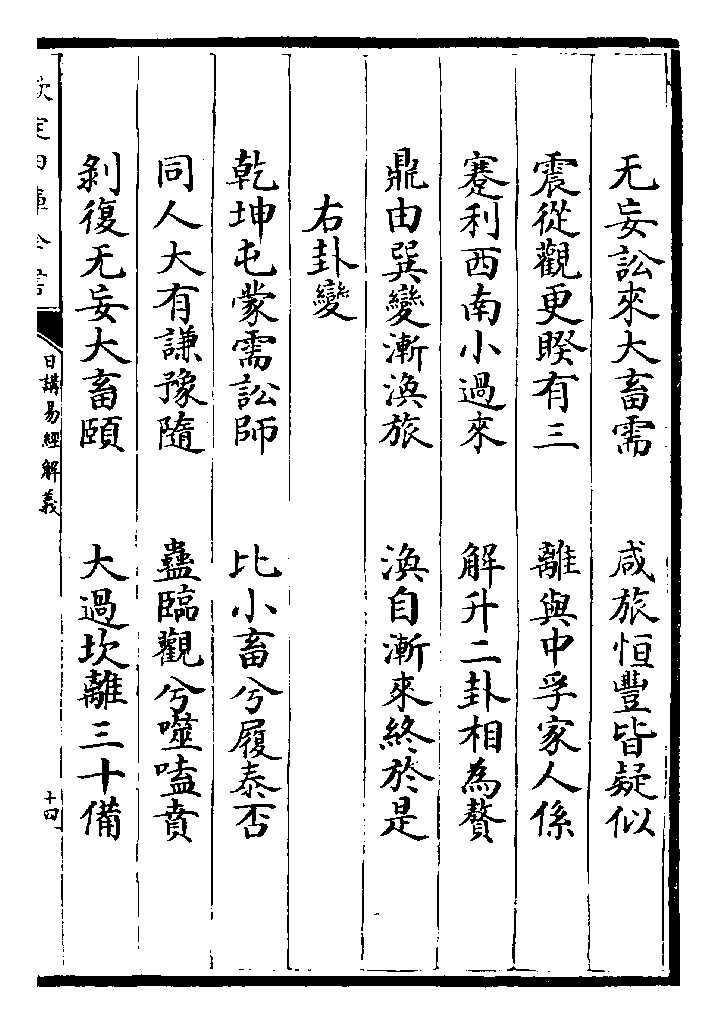 无妄訟來大畜需　咸旅恒豐皆疑似
震從觀更睽有三　離與中孚家人係
蹇利西南小過來　解升二卦相為贅
鼎由巽變漸渙旅　渙自漸來終於是
右卦變
乾坤屯蒙需訟師　比小畜兮履泰否
同人大有謙豫隨　蠱臨觀兮噬嗑賁
剝復无妄大畜頤　大過坎離三十備
欽定四庫全書
日講易經解義
十四